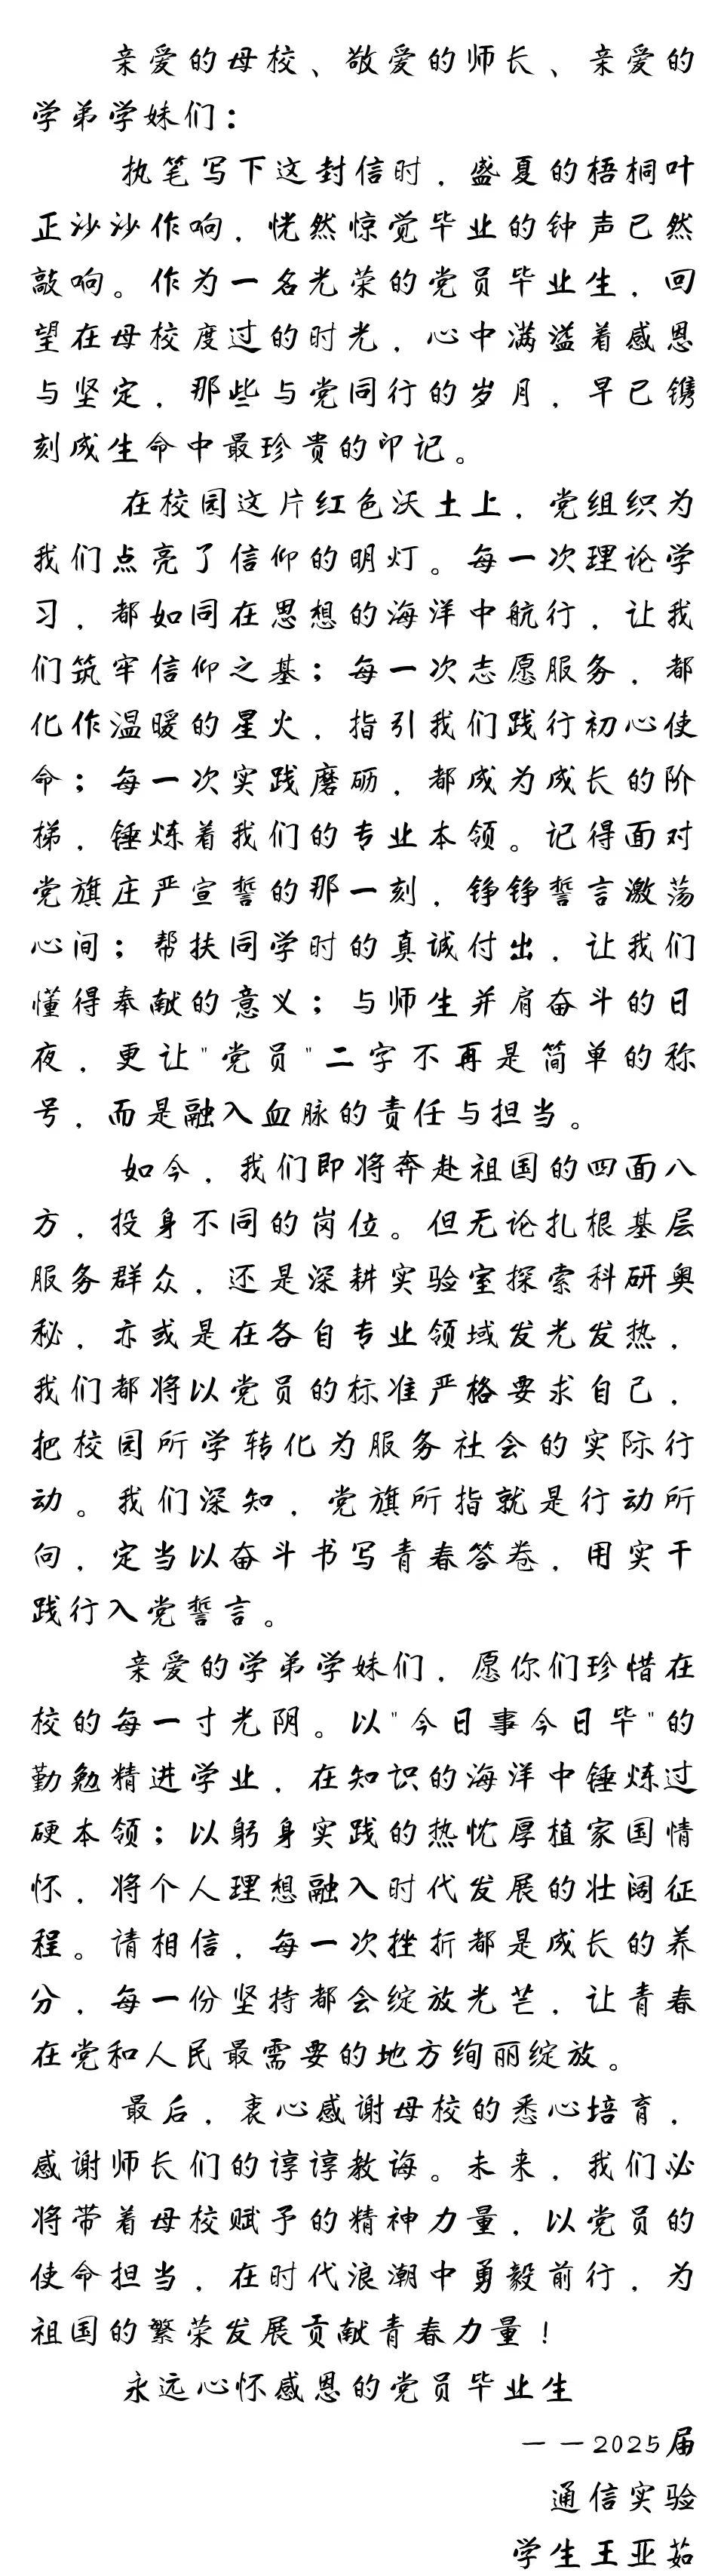 亲爱的母校、敬爱的师长、亲爱的
学弟学妹们：
执笔写下这封信时，盛夏的梧桐叶
正沙沙作响，恍然惊觉毕业的钟声已然
敲响。作为一名光荣的党员毕业生，回
望在母校度过的时光，心中满溢着感恩
与坚定，那些与党同行的岁月，早已镌
刻成生命中最珍贵的印记。
在校园这片红色沃土上，党组织为
我们点亮了信仰的明灯。每一次理论学
习，都如同在思想的海洋中航行，让我
们筑牢信仰之基；每一次志愿服务，都
化作温暖的星火，指引我们践行初心使
命；每一次实践磨砺，都成为成长的阶
梯，锤炼着我们的专业本领。记得面对
党旗庄严宣誓的那一刻，铮铮誓言激荡
心间；帮扶同学时的真诚付出，让我们
懂得奉献的意义；与师生并肩奋斗的日
夜，更让"党员"二字不再是简单的称
号，而是融入血脉的责任与担当。
如今，我们即将奔赴祖国的四面八
方，投身不同的岗位。但无论扎根基层
服务群众，还是深耕实验室探索科研奥
秘，亦或是在各自专业领域发光发热，
我们都将以党员的标准严格要求自己，
把校园所学转化为服务社会的实际行
动。我们深知，党旗所指就是行动所
向，定当以奋斗书写青春答卷，用实干
践行入党誓言。
亲爱的学弟学妹们，愿你们珍惜在
校的每一寸光阴。以"今日事今日毕"的
勤勉精进学业，在知识的海洋中锤炼过
硬本领；以躬身实践的热忱厚植家国情
怀，将个人理想融入时代发展的壮阔征
程。请相信，每一次挫折都是成长的养
分，每一份坚持都会绽放光芒，让青春
在党和人民最需要的地方绚丽绽放。
最后，衷心感谢母校的悉心培育，
感谢师长们的谆谆教诲。未来，我们必
将带着母校赋予的精神力量，以党员的
使命担当，在时代浪潮中勇毅前行，为
祖国的繁荣发展贡献青春力量！
永远心怀感恩的党员毕业生
——2025届
通信实验
学生王亚茹